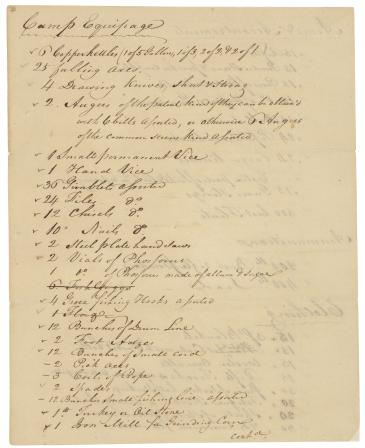 Camp Equipage
6 Copper kettles, 1 of 5 Gallons, 1 of 3, 2 of 2, & 2 of 1
25 falling axes.
4 Drawing knives, short & strong
2 Augers of the patent kind if they can be obtain'd
with 6 bitts assorted, or otherwise 6 Augers
of the common screw kind assorted
1 Small permanent Vice
1 Hand Vice
36 Gimblets assorted
24 Files do
12 Chisels do
10 Nails do
2 Steel plate hand saws
2 Vials of Phosforus
1 do of Phosforus made of allum & sugar
4 Groce fishing Hooks assorted
12 Bunches of Drum Line
2 Foot Adzes
12 Bunches of Small cord
2 Pick axes
3 Coils of Rope
2 Spades
12 Bunches Small fishing line assorted
1 lb Turkey or Oil Stone
1 Iron Mill for Grinding Corn
contd.